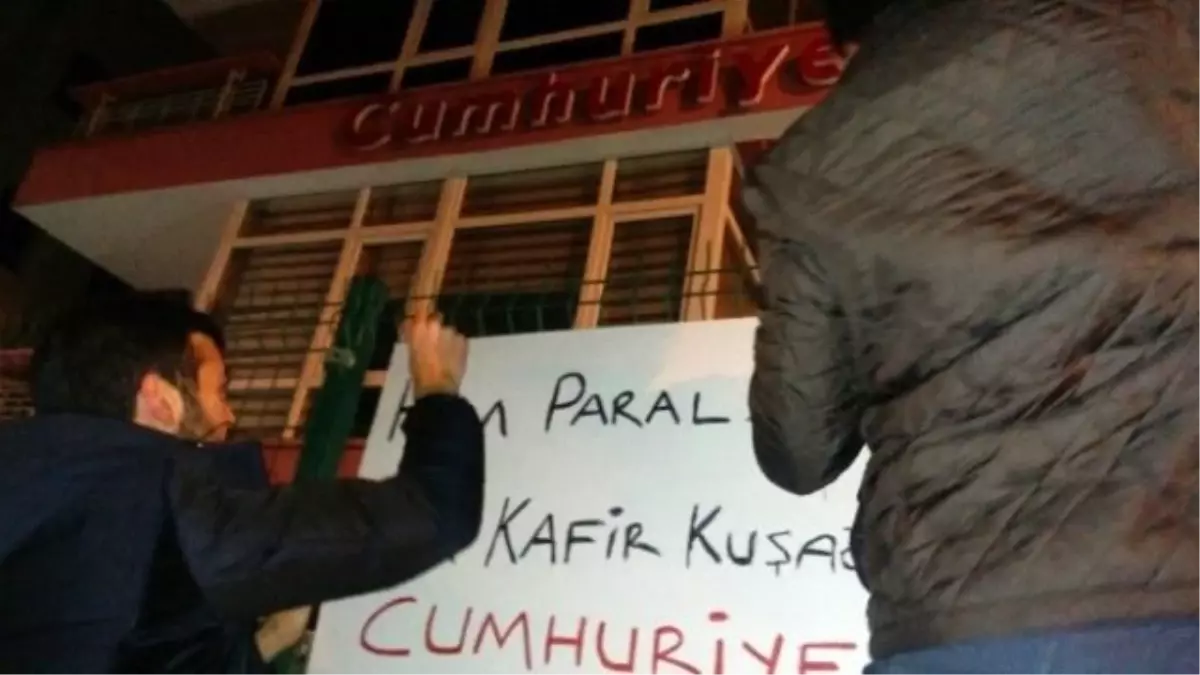 Cumhuriye
PARAL
KAFİR KUŞAĞ
CUMHURİYE